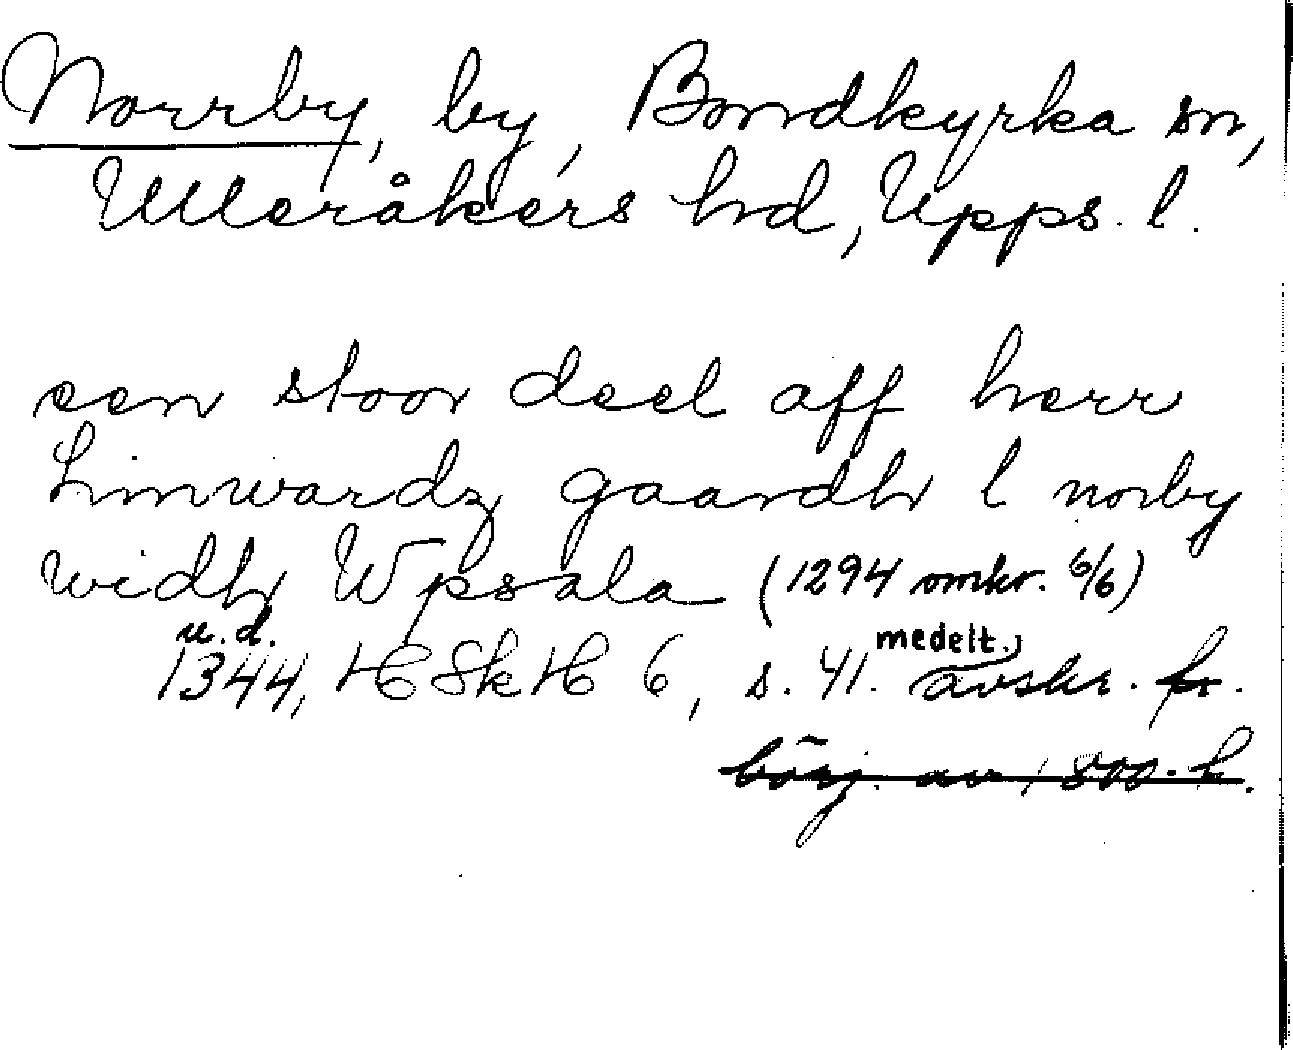 Norrby, by, Bondkyrka sn,
Ulleråkers hd, Upps. l.
een stoor deel aff herr
Linwardz gaardh l norby
widh Wpsala (1294 omkr. 6/6)
u.d.
1344, HSkH 6, s. 41. medelt. avskr. fr.
börj. av 1800-t.